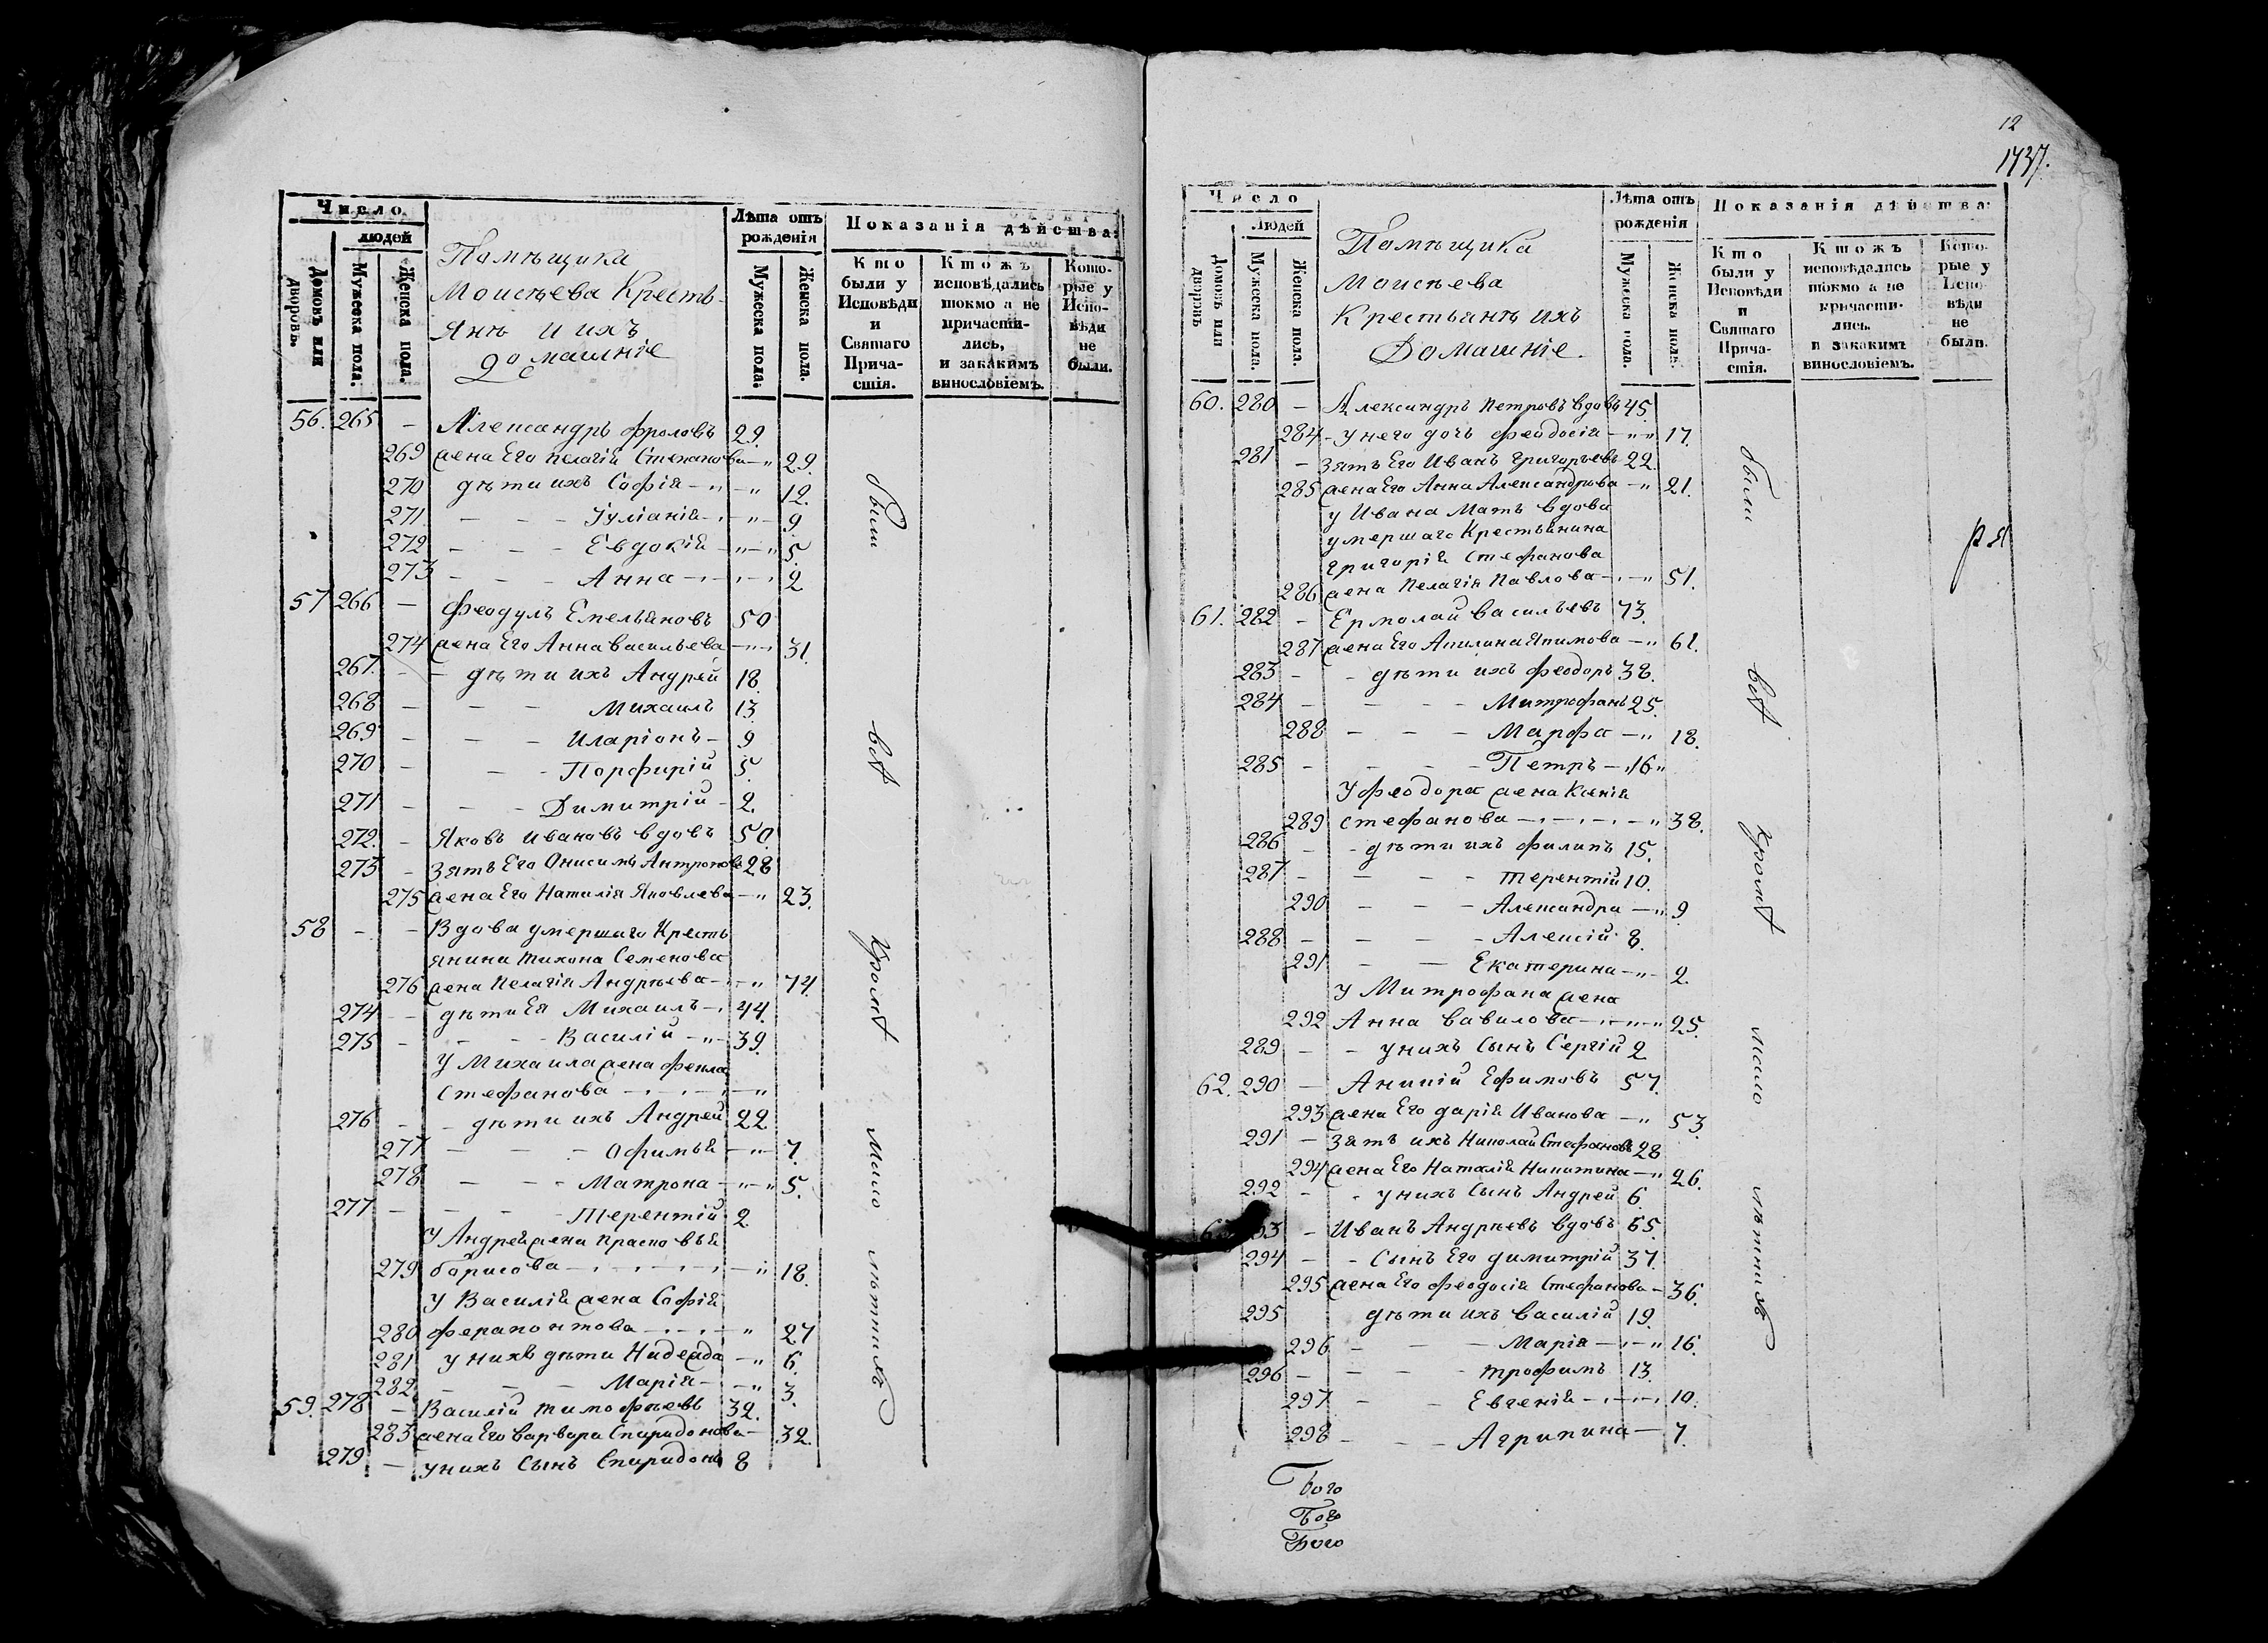 Число
людей
Домовъ или дворовъ.
Мужеска пола.
Женска пола.
Помѣщика
Моисѣева Кресть-
янъ и ихъ
домашніе
Лѣта отъ рожденія
Мужеска пола.
Женска пола.
Показанія дѣйства:
Кто были у Исповѣди и Святаго Причастія.
Ктожъ исповѣдались токмо а не причастились, и закакимъ винословіемъ.
Которые у Исповѣди не были.
56. 265 - Александръ Фроловъ 29.
269 жена Его Пелагія Степанова - " 29.
270 дѣти ихъ Софія - " - " 12.
271 - - - Іуліанія - " - 9
272 - - - Евдокія - " - " 5.
273 - - - Анна - " - " 2
57 266 - Феодулъ Емельяновъ 50
274 жена Его Анна Васильева - " - 31.
267. - - дѣти ихъ Андрей 18.
268 - - - Михаилъ 13.
269 - - - Иларіонъ - 9
270 - - - Порфирій 5.
271 - - - Димитрій - 2.
272. - Яковъ Ивановъ вдовъ 50.
273 - Зять Его Онисимъ Антроповъ 28
275 жена Его Наталія Яковлева - " 23.
58 - - Вдова умершаго Кресть
янина Тихона Семенова
276 жена Пелагія Андрѣева - " - " 74.
274 - - дѣти Ея Михаилъ - " 44.
275 - - - Василій - " - 39.
У Михаила жена Фекла
Стефанова - " - " - "
276 - - дѣти ихъ Андрей 22
277 - - - Офимья - " - 7.
278 - - - Матрона - " - " 5.
277 - - - Терентій 2
У Андрея жена Прасковья
279 борисова - " - " - " 18.
У Василія жена Софія
280 Ферапонтова - " - " 27
281 у нихъ дѣти Надежда - " 6.
282 - - - Марія - " - " 3.
59. 278 - Василій Тимофѣевъ 32.
283 жена Его Варвара Спиридонова - 32.
279 - у нихъ Сынъ Спиридонъ 8
были
всѣ
кромѣ
мало
лѣтнихъ
12
1737.
Число
Людей
Домовъ или дворовъ
Мужеска пола.
Женска пола.
Помѣщика
Моисѣева
Крестьянъ ихъ
Домашніе.
Лѣта отъ рожденія
Мужеска пола.
Женска пола.
Показанія дѣйства:
Кто были у Исповѣди и Святаго Причастія.
Ктожъ исповѣдались токмо а не причастились. и закакимъ винословіемъ.
Которые у Исповѣди не были.
60. 280 - Александръ Петровъ вдовъ 45.
284 - у него дочь Феодосія - " - " 17.
281 - Зять Его Иванъ Григорьевъ 22.
285 жена Его Анна Александрова - " 21.
у Ивана Мать вдова
умершаго Крестьянина
Григорія Стефанова
286 жена Пелагія Павлова - " - " 51.
61. 282 - Ермолай Васильевъ 73.
287 жена Его Акилина Якимова - " 61.
283 - - дѣти ихъ Феодоръ 38.
284 - - - Митрофанъ 25.
288 - - - Марфа - " 18.
285 - - - Петръ - " 16 "
У Феодора жена Ксенія
289 стефанова - " - " - " 38.
286 - - дѣти ихъ Филипъ 15.
287 - - - Терентій 10.
290 - - - Александра - " 9
288 - - - Алексій 8.
291 - - Екатерина - " - 2.
У Митрофана жена
292 Анна Вавилова - " - " 25.
289 - - у нихъ Сынъ Сергій 2
62. 290 - Аникій Ефимовъ 57.
293 жена Его Дарія Иванова - " 53.
291 - Зять ихъ Николай Стефановъ 28
294 жена Его Наталія Никитина - " 26.
292 - - у нихъ Сынъ Андрей 6.
- Иванъ Андрѣевъ вдовъ 65.
294 - - Сынъ Его Димитрій 37.
295 жена Его Феодосія Стефанова - 36.
295 дѣти ихъ Василій 19.
296 - - - Марія - " - " 16.
296 - - - Трофимъ 13.
297 - - Евгенія - " - " 10.
298 - - - Агрипина - 7.
были
всѣ
кромѣ
мало
лѣтнихъ
ря